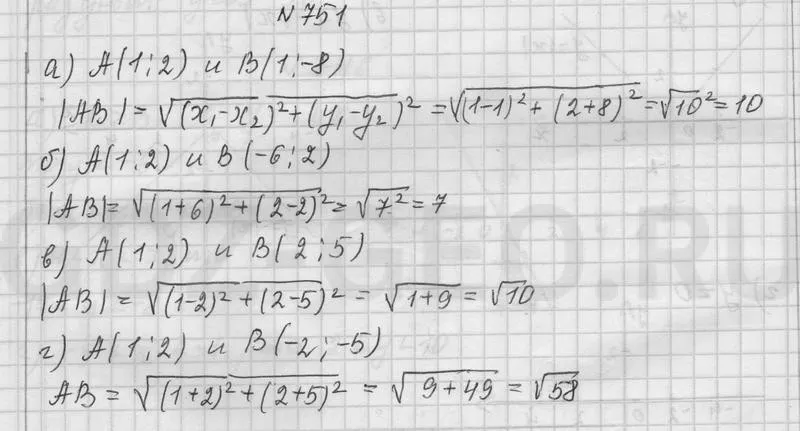 N 751
а) A(1;2) и B(1;-8)
|AB| = √(x₁-x₂)²+(y₁-y₂)² = √(1-1)²+(2+8)² = √10² = 10
б) A(1;2) и B(-6;2)
|AB| = √(1+6)²+(2-2)² = √7² = 7
в) A(1;2) и B(2;5)
|AB| = √(1-2)²+(2-5)² = √1+9 = √10
г) A(1;2) и B(-2;-5)
AB = √(1+2)²+(2+5)² = √9+49 = √58